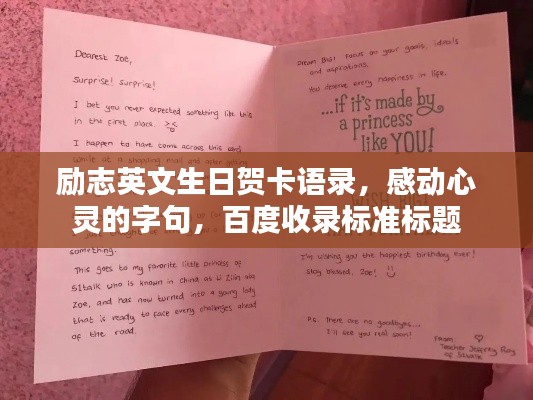 Dearest Zoe,
Surprise! surprise!
I bet you never expected something like this
in the first place. >_<
I happen to have come across this card
while at a shopping mall and after getting
励志英文生日贺卡语录，感动心
灵的字句，百度收录标准标题
something.
This goes to my favorite little princess of
SItalk who is known in China as
Zoe, and has now turned into a young lady
that is ready to face every challenges ahead
of the road.
Dream Big! Focus on your goals, ideals
and aspirations.
You deserve every happiness in life.
...if it's made by
a princess
like YOU!
WISH BIG!
I'm wishing you the happiest birthday ever!
Stay blessed, Zoe! :)
P.s. There are no goodbyes...
I'll see you real soon!
From:
Teacher
of SItalk